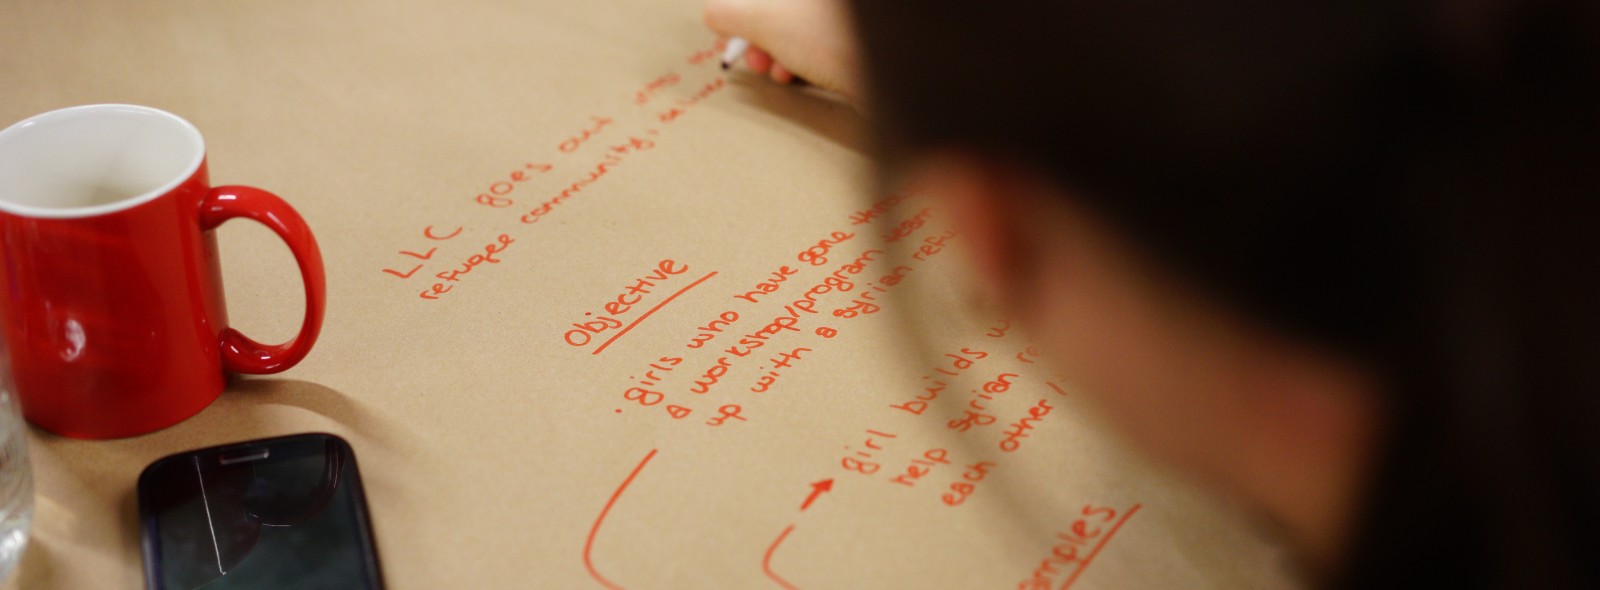 LLC goes out into
refugee community,
Objective
· girls who have gone
a workshop/program team
up with a syrian refu
girl builds w
help syrian re
each other/
amples